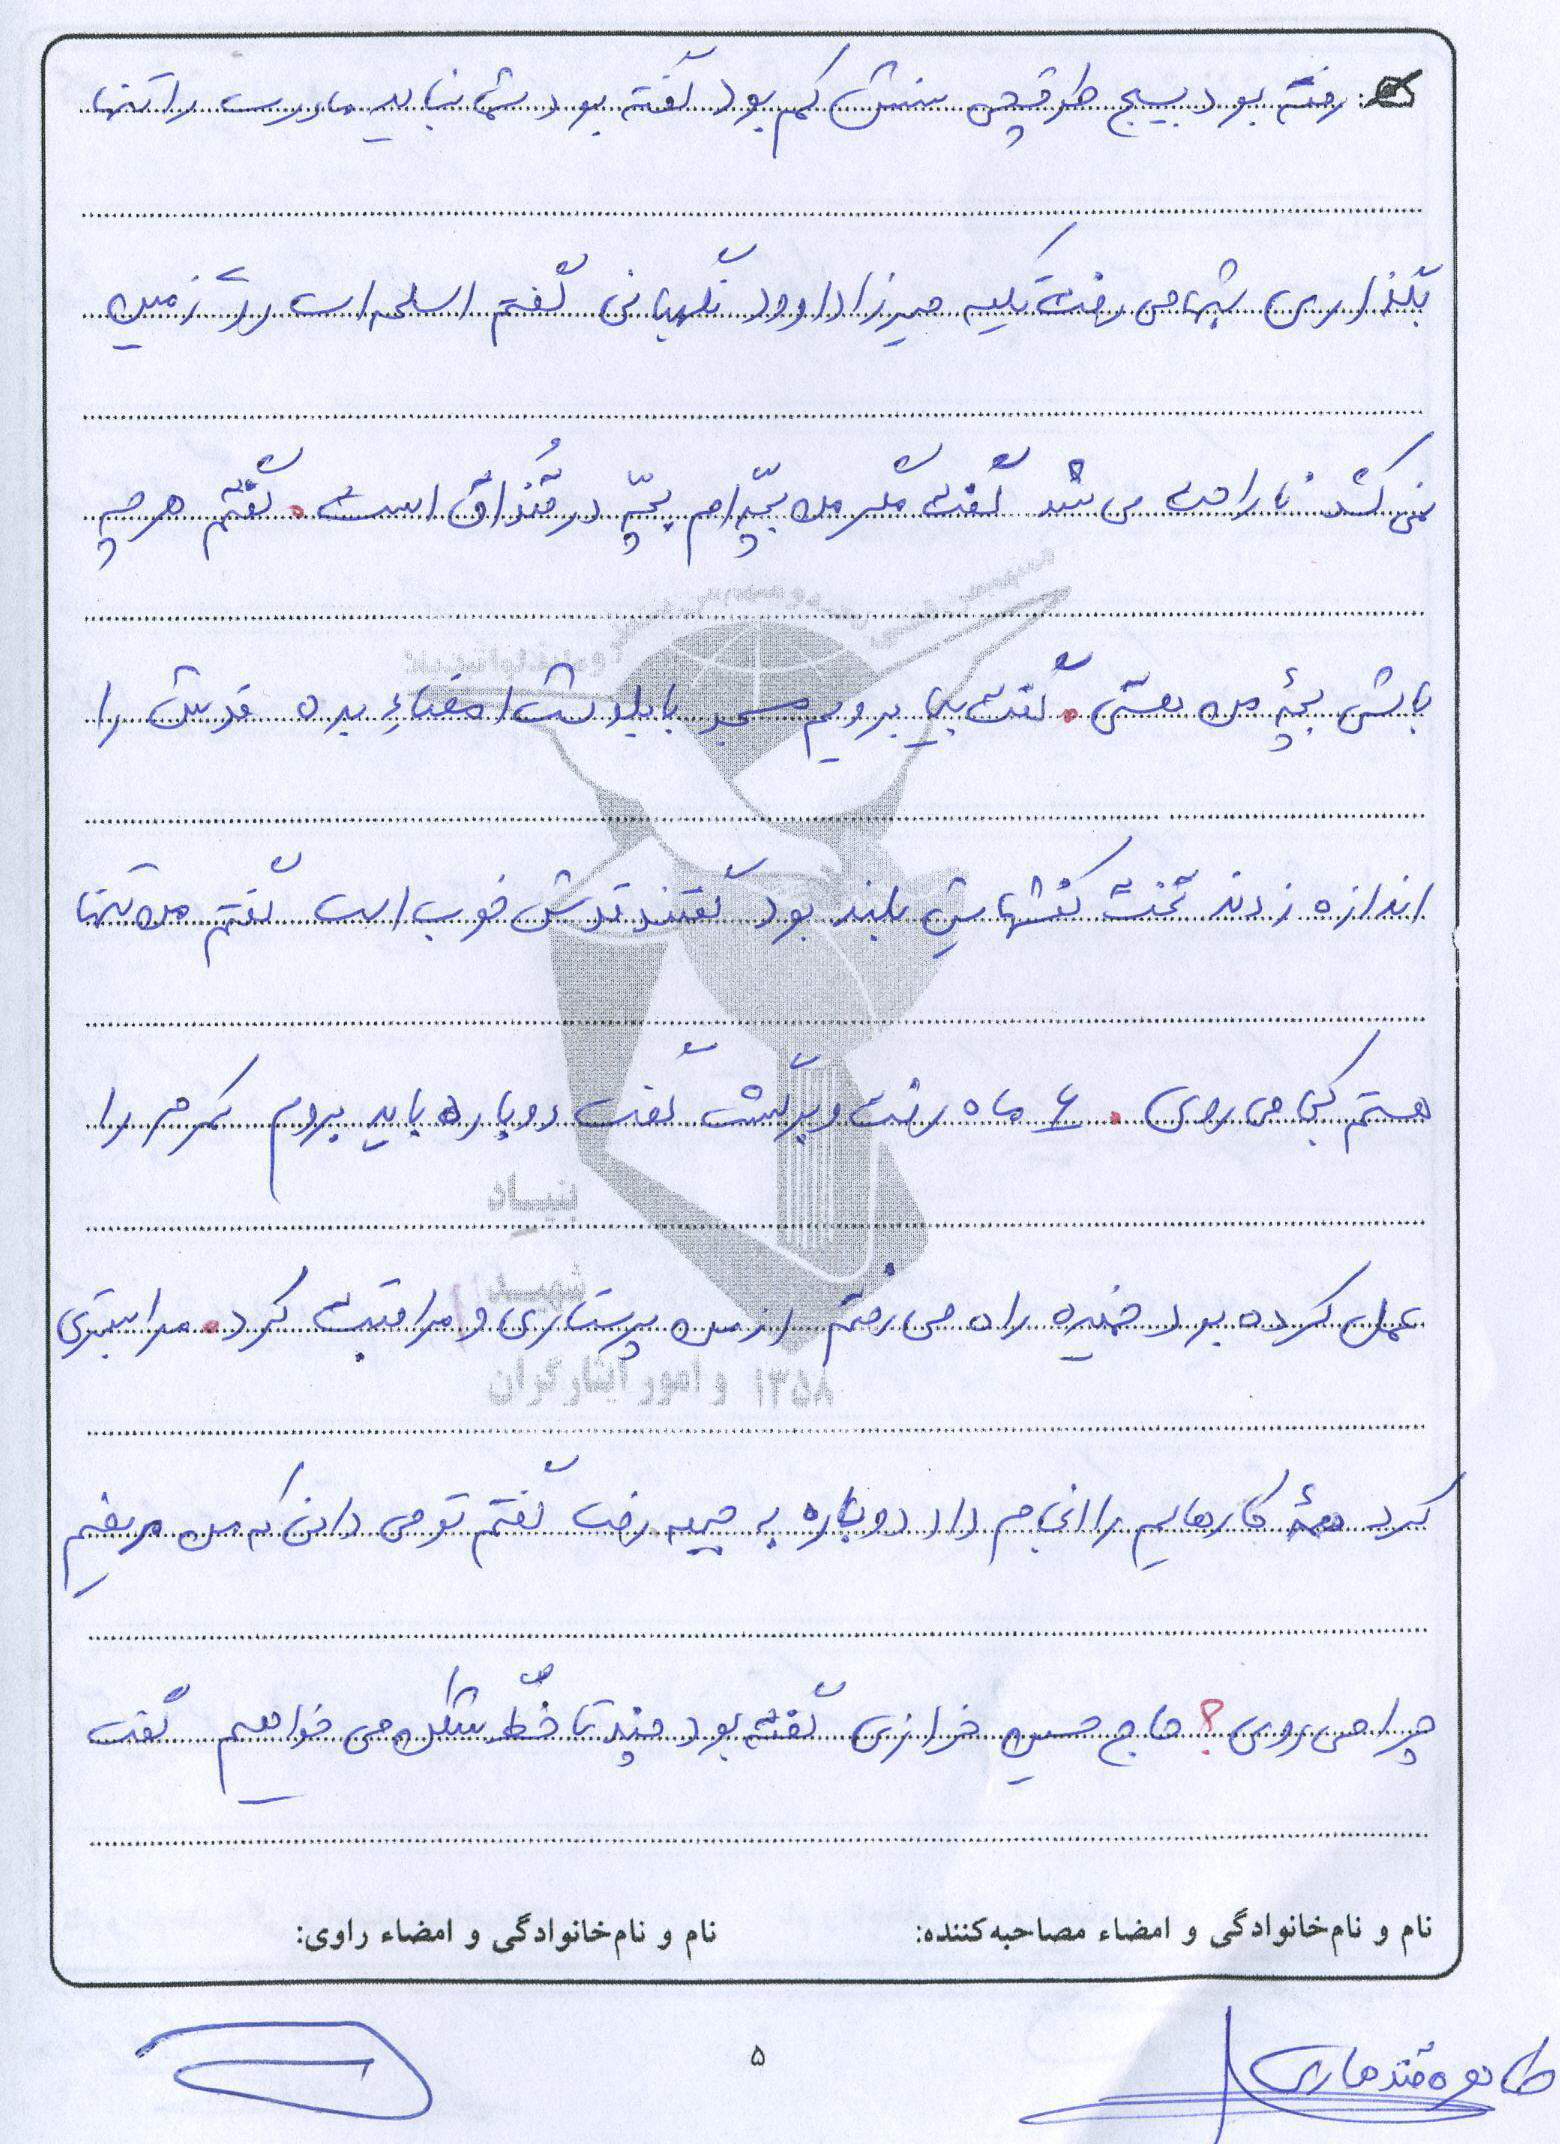 رفته بود بسیج طوقچی سنش کم بود گفته بود شما نباید مادرت را تنها
بگذاری شبها می رفت تکیه میرزا داوود نگهبانی گفتم اسلحه ات روی زمین
نمی کشد ناراحت می شد گفت مگر من بچّه ام بچّه در قُنداق است. گفتم هر چه
باشی بچۀ من هستی. گفت بیا برویم مسجد بابلدشت امضاء بده قدش را
اندازه زدند تخت کفشهایش بلند بود گفتند قدش خوب است گفتم من تنها
هستم کجا می روی. ۶ ماه رفت و برگشت گفت دوباره باید بروم کمرم را
عمل کرده بود خمیره راه می رفتم از من پرستاری و مراقبت کرد. مرا بستری
کرد همۀ کارهایم را انجام داد دوباره به جبهه رفت گفتم تو می دانی که من مریضم
چرا می روی؟ حاج حسین خرازی گفته بود چند تا خط شکن می خواهیم گفت
نام و نام‌خانوادگی و امضاء مصاحبه‌کننده:
نام و نام‌خانوادگی و امضاء راوی:
طاهره قندهاری
۵
بنیاد
شهید
و امور ایثارگران
۱۳۵۸